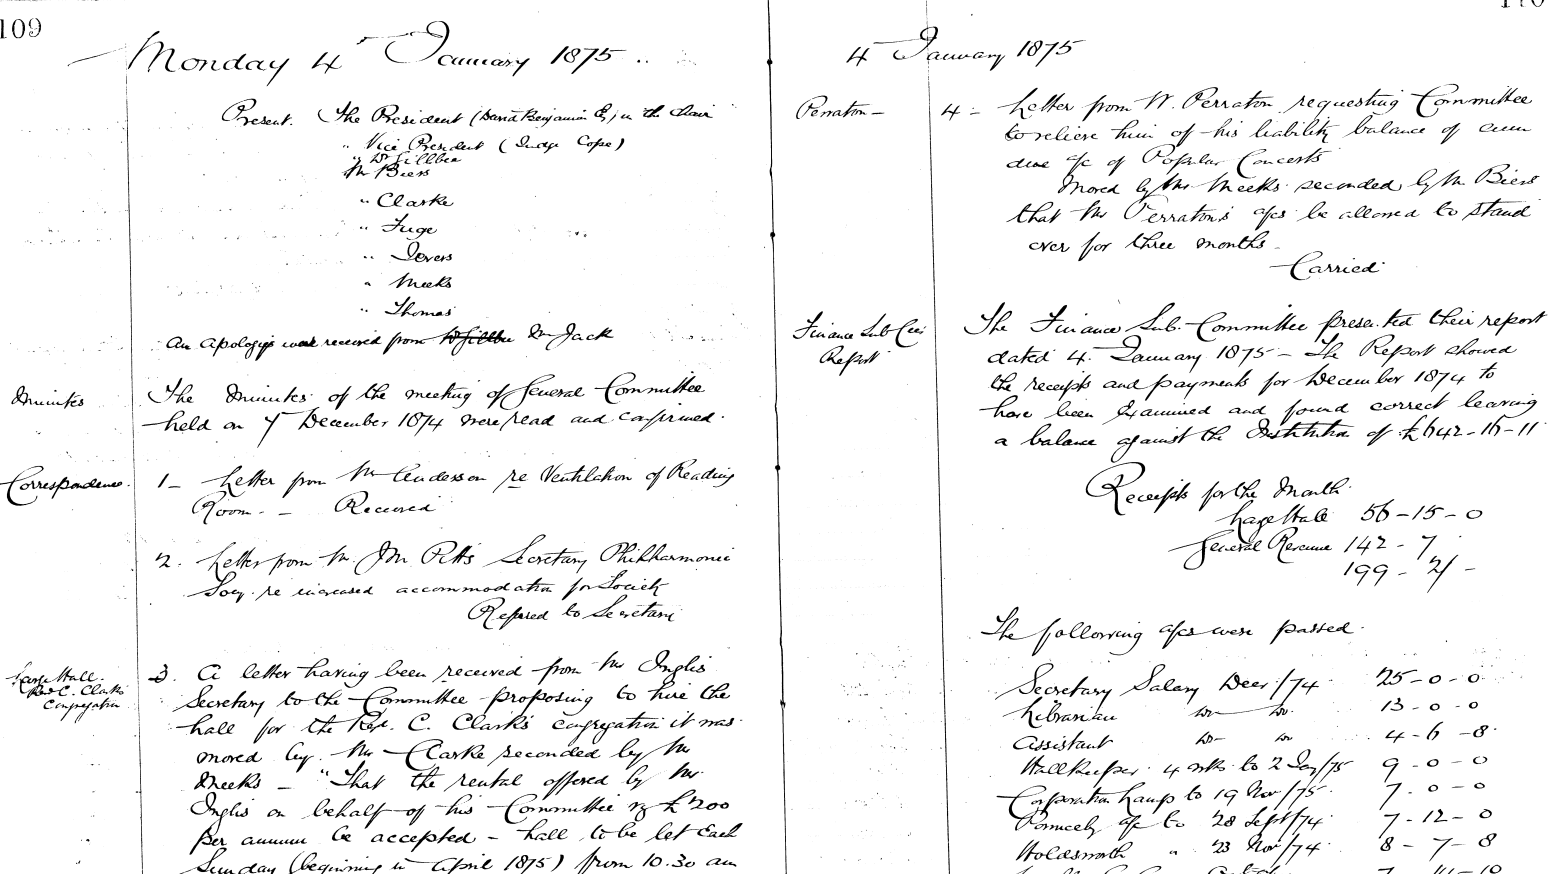 109
Monday 4 January 1875
Present. The President (David Benjamin Esq) in the chair
" Vice President (Judge Cope)
" Dr Gillbee
Mr Biers
" Clarke
" Fuge
" Ievers
" Meeks
" Thomas
An apology was received from Mr Jack
Minutes
The Minutes of the meeting of General Committee
held on 7 December 1874 were read and confirmed.
Correspondence.
1 - Letter from Mr Anderson re Ventilation of Reading
Room. - Received
2. Letter from Mr Pitts Secretary Philharmonic
Socy. re increased accommodation for Society
Referred to Secretary
Large Hall.
Rev C. Clarks
Congregation
3. A letter having been received from Mr Inglis
Secretary to the Committee proposing to hire the
hall for the Rev. C. Clark's congregation it was
moved by Mr Clarke seconded by Mr
Meeks - "That the rental offered by Mr
Inglis on behalf of his Committee vz £200
per annum be accepted - hall to be let each
Sunday (beginning in April 1875) from 10.30 am
4 January 1875
Perraton -
4 - Letter from W. Perraton requesting Committee
to relieve him of his liability balance of
due a/c of Popular Concerts
Moved by Mr Meeks seconded by Mr Biers
that Mr Perraton's a/cs be allowed to stand
over for three months.
Carried
Finance Sub Cee
Report
The Finance Sub-Committee presented their report
dated 4 January 1875 - The Report showed
the receipts and payments for December 1874 to
have been examined and found correct leaving
a balance against the Institution of £642-16-11
Receipts for the Month
Large Hall 56-15-0
General Revenue 142-7
199-2/-
The following a/cs were passed.
Secretary Salary Decr/74 25-0-0
Librarian do do 13-0-0
Assistant do do 4-6-8
Hallkeeper 4 wks to 2 Jan/75 9-0-0
Corporation Lamp to 19 Nov/75 7-0-0
a/c to 28 Sept/74 7-12-0
Holdsworth " 23 Nov/74 8-7-8